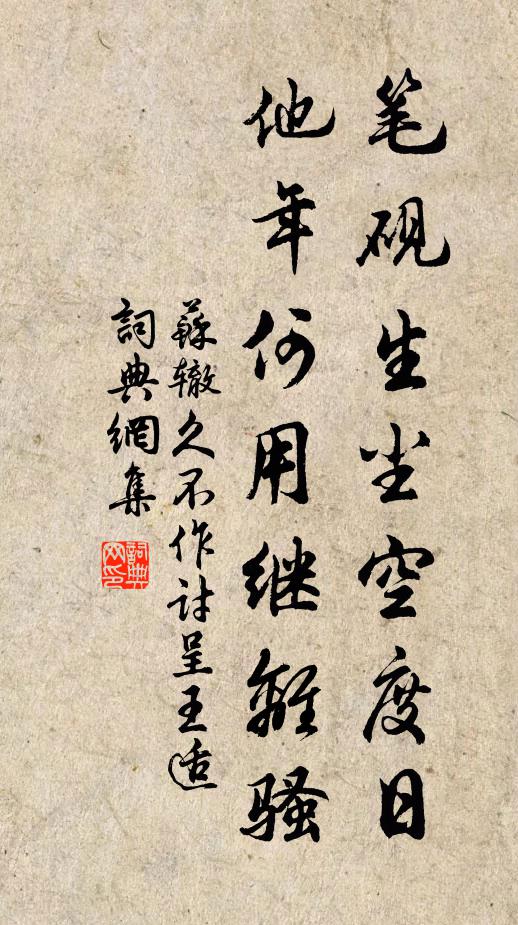 笔砚生尘空度日
他年何用继離骚
蘇辙久不作诗呈王适
詞典網集
詞典网印